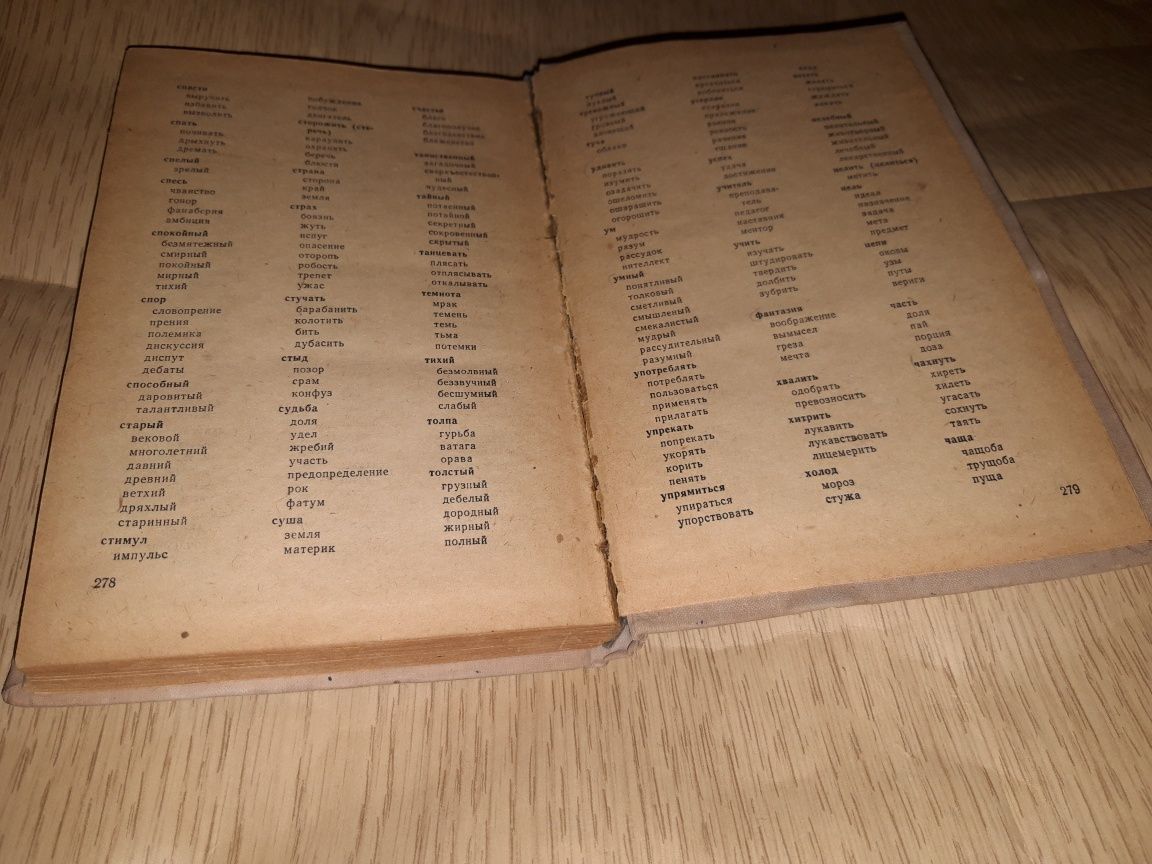 спасти
выручить
избавить
вызволить
спать
почивать
дрыхнуть
дремать
спелый
зрелый
спесь
чванство
гонор
фанаберия
амбиция
спокойный
безмятежный
смирный
покойный
мирный
тихий
спор
словопрение
прения
полемика
дискуссия
диспут
дебаты
способный
даровитый
талантливый
старый
вековой
многолетний
давний
древний
ветхий
дряхлый
старинный
стимул
импульс
побуждение
толчок
двигатель
сторожить (сте-
речь)
караулить
охранять
беречь
блюсти
страна
сторона
край
земля
страх
боязнь
жуть
испуг
опасение
оторопь
робость
трепет
ужас
стучать
барабанить
колотить
бить
дубасить
стыд
позор
срам
конфуз
судьба
доля
удел
жребий
участь
предопределение
рок
фатум
суша
земля
материк
счастье
благо
благополучие
благоденствие
блаженство
таинственный
загадочный
сверхъестествен-
ный
чудесный
тайный
потаенный
потайной
секретный
сокровенный
скрытый
танцевать
плясать
отплясывать
откалывать
темнота
мрак
темень
темь
тьма
потемки
тихий
безмолвный
беззвучный
бесшумный
слабый
толпа
гурьба
ватага
орава
толстый
грузный
дебелый
дородный
жирный
полный
278
тучный
тревожный
угрожающий
грозный
туча
облако
удивить
поразить
изумить
озадачить
ошеломить
ошарашить
огорошить
ум
мудрость
разум
рассудок
интеллект
умный
понятливый
толковый
сметливый
смышленый
смекалистый
мудрый
рассудительный
разумный
употреблять
потреблять
пользоваться
применять
прилагать
упрекать
попрекать
укорять
корить
пенять
упрямиться
упираться
упорствовать
усердие
старание
прилежание
рвение
ревность
радение
тщание
успех
удача
достижение
учитель
преподава-
тель
педагог
наставник
ментор
учить
изучать
штудировать
твердить
долбить
зубрить
фантазия
воображение
вымысел
греза
мечта
хвалить
одобрять
превозносить
хитрить
лукавить
лукавствовать
лицемерить
холод
мороз
стужа
желать
алкать
целебный
целительный
животворный
живительный
лечебный
лекарственный
целить (целиться)
метить
цель
идеал
назначение
задача
мета
предмет
цепи
оковы
узы
путы
вериги
часть
доля
пай
порция
доза
чахнуть
хиреть
хилеть
угасать
сохнуть
таять
чаща
чащоба
трущоба
пуща
279